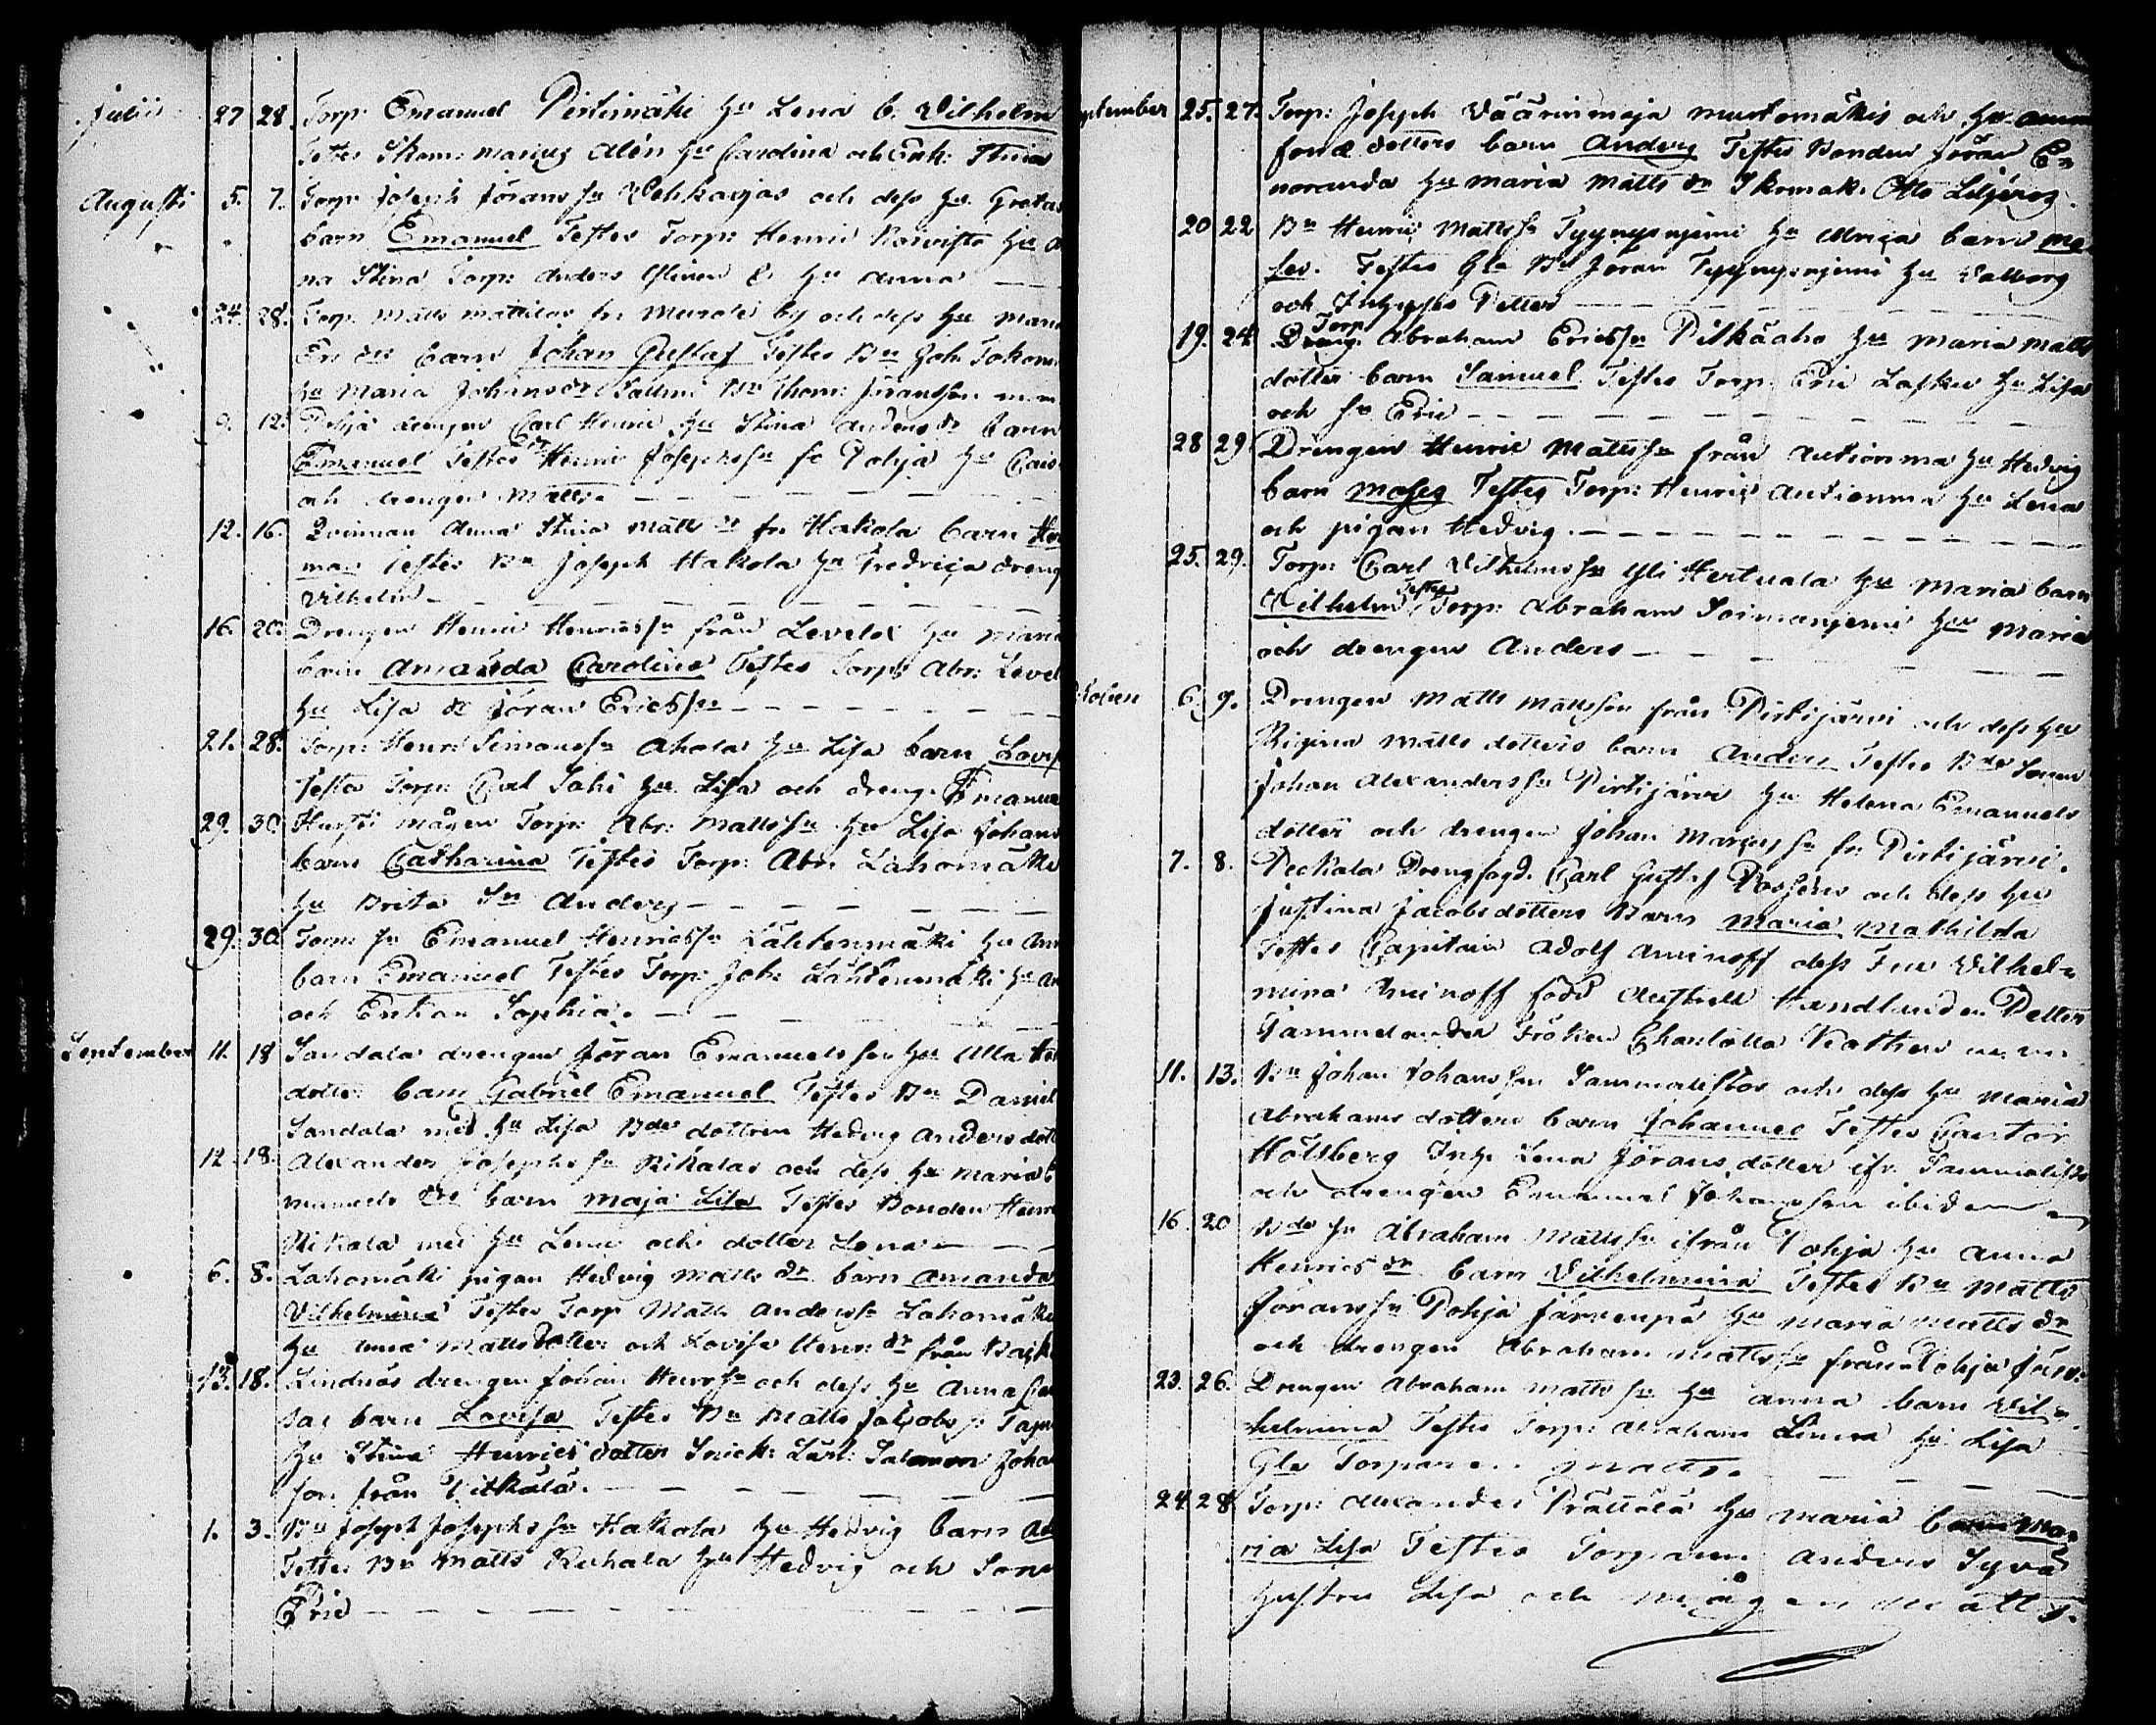 Julii 27 28. Torp: Emanuel Pirtimäki hu Lena b. Vilhelm
Testes Skom: Marius Alén hu Carolina och Enk: Stina
Augusti 5. 7. Torp: Joseph Jörans sn Vehkaojas och dess hu Gretas
barn Emanuel Testes Torp: Henric Koivisto hu
na Stina Torp: Anders hu Anna
24. 28. Torp. Matts Mattilas fr Murole by och dess hu Maria
Er: dr barn Johan Gustaf Testes Bn Joh:
hu Maria Johans dr Bn Thom: Jöransson
9. 12. Pohja drengen Carl Henric hu Stina Anders dr barn
Emanuel Testes Henric Josephs sn fr Pohja hu Cajsa
och drengen Matts.
12. 16. Qvinnan Anna Stina Matts dr fr Hakola barn
man Testes Bn Joseph Hakola hu Fredrica dreng
Vilhelm
16. 20. Drengen Henric Henrics sn från Levelä hu Maria
barn Amanda Carolina Testes Torp: Abr: Level
hu Lisa & Jöran Erics sn
21. 28. Torp: Henr: Simons sn Ahola hu Lisa barn Lovis
Testes Torp: Carl Sahi hu Lisa och dreng. Emanuel
29. 30. mågen Torp: Abr: Matts sn hu Lisa Johans
barn Catharina Testes Torp: Abr: Lahomäki
hu Brita Sn Anders
29. 30. Torp: sn Emanuel Henrics sn Lähtenmäki hu Ann
barn Emanuel Testes Torp: Joh: Lähtenmäki hu An
och Enkan Sophia.
September 11. 18 Sandala drengen Jöran Emanuels son hu Ulla
dotter barn Gabriel Emanuel Testes Bn Daniel
Sandala med hu Lisa Bde dottren Hedvig Anders dott
12. 18. Alexander Josephs sn Rikalas och dess hu Maria E
manuels dr barn Maja Lisa Testes Bonden Henric
Rikala med hu Lena och dotter Lena
6. 8. Lahomäki pigan Hedvig Matts dr barn Amanda
Vilhelmina Testes Torp Matts Anders sn Lahomäki
hu Anna Matts dotter och Lovisa Henr: dr från
13. 18. Lindnäs drengen Johan Henr sn och dess hu Anna
sas barn Lovisa Testes Bn Matts Jakobs s:
hu Stina Henrics dotter Snick: Lärl: Salomon Johan
son från Pitkälä.
1. 3. Bn Joseph Josephs sn Hakola hu Hedvig barn
Testes Bn Matts Ruhala hu Hedvig och Son
Eric
September 25. 27. Torp: Joseph Väärinmaja Mustomäkis och hu Anna
dotters barn Anders Testes Bonden Jöran E=
noranda hu Maria Matts dr Skomak: Otto Liljeroz.
20 22 Bn Henric Matts sn Tyynysniemi hu Ulrica barn Mo
ses. Testes Gle Bn Jöran Tyynysniemi hu Valborg
och Inhyses Petter
19. 24. Torp Dreng. Abraham Erics sn Pitkäaho hu Maria Matts
dotter barn Samuel Testes Torp: Eric hu Lisa
och sn Eric
28 29 Drengen Henric Matts sn från Autionma hu Hedvig
barn Moses Testes Torp: Henric Autionma hu Lena
och pigan Hedvig.
25. 29. Torp: Carl Vilhelms sn Yli Hertuala hu Maria barn
Vilhelm Testes Torp: Abraham Soimanjemi hu Maria
och drengen Anders
6. 9. Drengen Matts Mattsson från Pirtijärvi och dess hu
Rigina Matts dotters barn Anders Testes Bde Sonen
Johan Alexanders sn Pirtijärvi hu Helena Emanuels
dotter och drengen Johan Marius sn fr Pirtijärvi.
7. 8. Peckala Drengfogd. Carl Gustaf och dess hu
Justina Jacobsdotters Barn Maria Mathilda
Testes Capitain Adolf Aminoff dess Fru Vilhel=
mina Aminoff född Handlanden Petter
Tammelander Fröken Charlotta Rothen
11. 13. Bn Johan Johansson Sammalistos och dess hu Maria
Abrahams dotters barn Johannes Testes Cantor
Hölsberg Inh: Lena Jörans dotter ifr. Sammalisto
och drengen Emanuel Johansson ibidem
16. 20 Bde sn Abraham Matts sn ifrån Pohja hu Anna
Henrics dr barn Vilhelmina Testes Bn Matts
Jörans sn Pohja Järvenpä hu Maria Matts dr
och drengen Abraham Matts sn från Pohja Järv.
23. 26. Drengen Abraham Matts sn hu Anna barn Vil=
helmina Testes Torp: Abraham Linna hu Lisa
Gle Torparen Matts.
24. 28. Torp: Alexander Prättälä hu Maria barn Ma=
ria Lisa Testes Torparen Anders Syvä
hustru Lisa och mågen Matts.